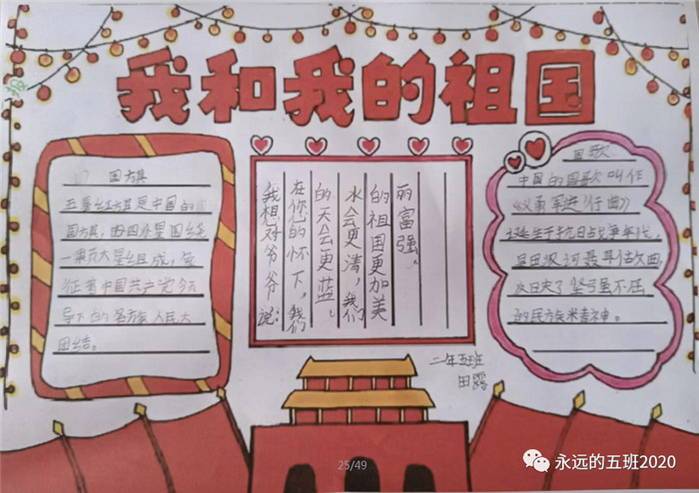 我和我的祖国
国旗
五星红旗是中国的
国旗，由四个小星围绕
一颗大星组成，象
征着中国共产党领
导下的各方族人民大
团结。
我想对爷爷说：
在你的怀下，我们
的天会更蓝。
水会更清，我们
的祖国更加美
丽富强。
国歌
中国的国歌叫作
《义勇军进行曲》
诞生于抗日战争年代
反日
坚强不屈
的民方族米青神。
二年五班
田露
25/49
永远的五班2020